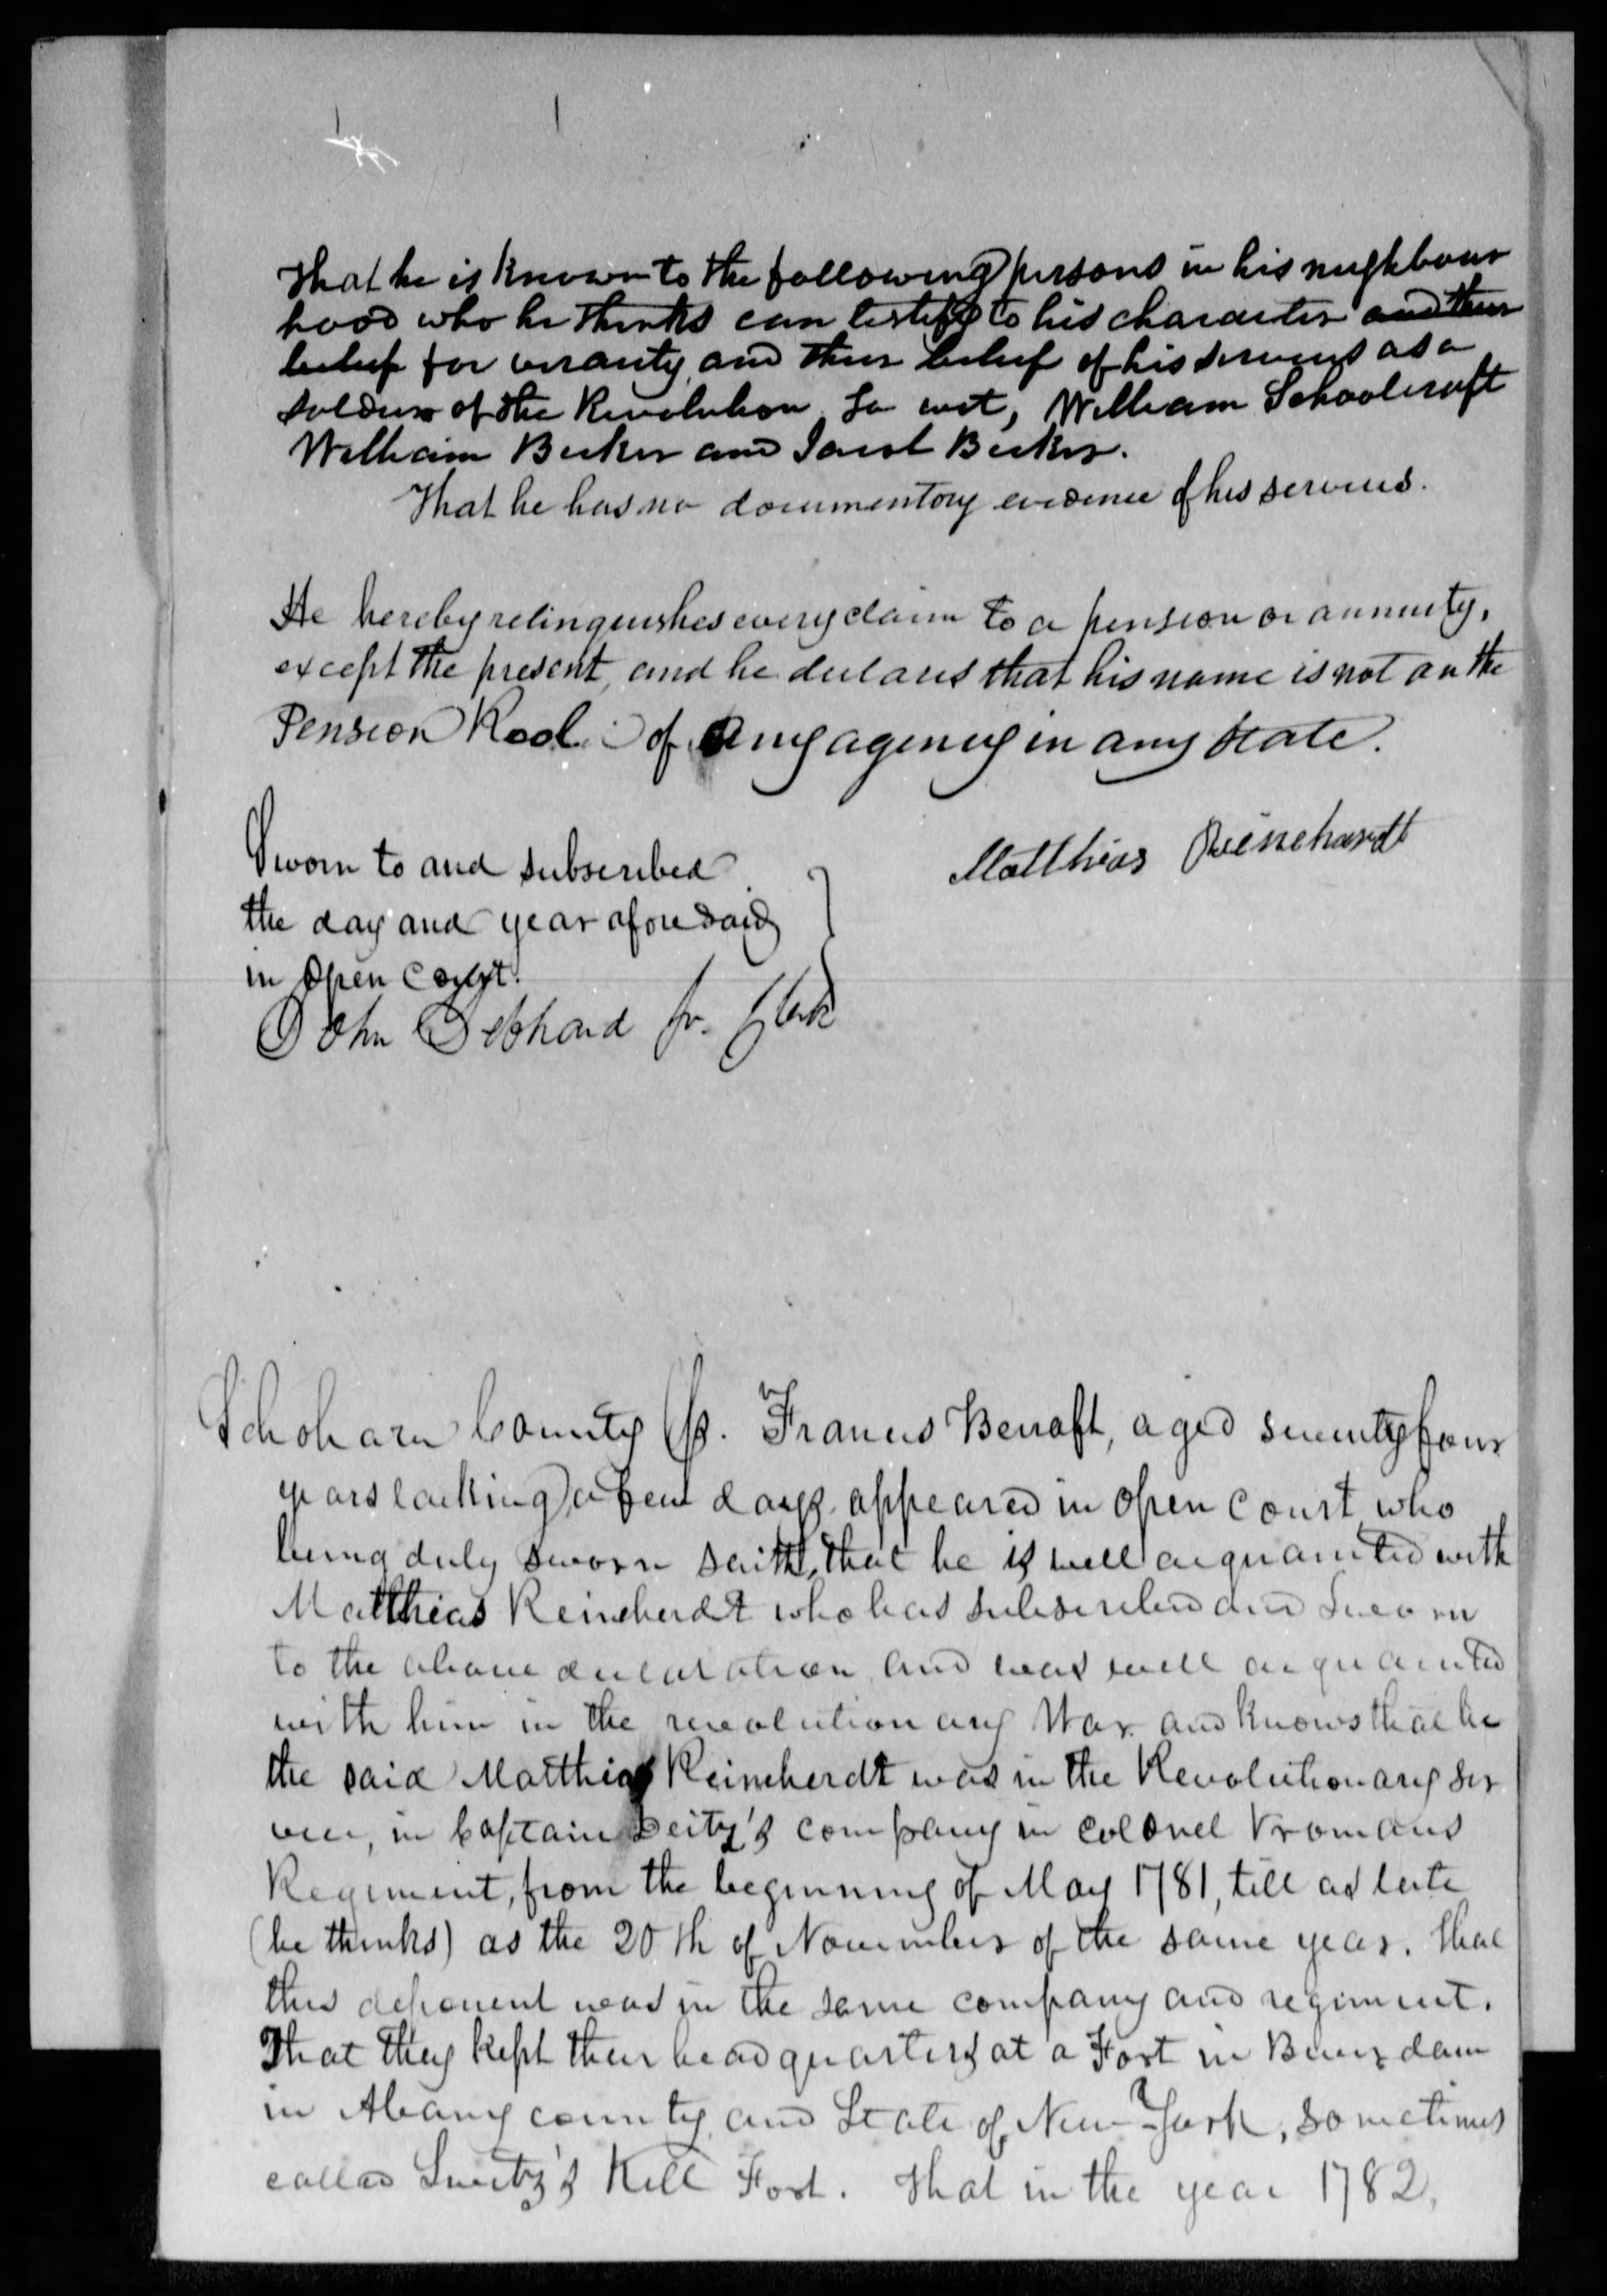 That he is known to the following persons in his neighbour
hood who he thinks can testify to his character and their
belief for veracity and their belief of his services as a
soldier of the Revolution. To wit, William Schoolcraft
William Becker and Joust Becker.
That he has no documentory evidence of his services.
He hereby relinquishes every claim to a pension or annuity,
except the present, and he declares that his name is not on the
Pension Rool of any agency in any state.
Matthias Reinehardt
Sworn to and subscribed
the day and year aforesaid
in open court.
John Gebhard Jr. Clerk
Schoharie County ss. Francis Becraft, aged seventy four
years lacking a few days appeared in open court who
being duly sworn saith, that he is well acquainted with
Matthias Reineherdt who has subscribed and sworn
to the above declaration and was well acquainted
with him in the revolutionary War and knows that he
the said Matthias Reineherdt was in the Revolutionary ser
vice, in Captain Deitz's company in colonel Vromans
Regiment, from the beginning of May 1781, till as late
(he thinks) as the 20th of November of the same year. that
this deponent was in the same company and regiment.
That they kept their head quarters at a Fort in
in Albany county and State of New-York, sometimes
called Kill Fort. That in the year 1782,